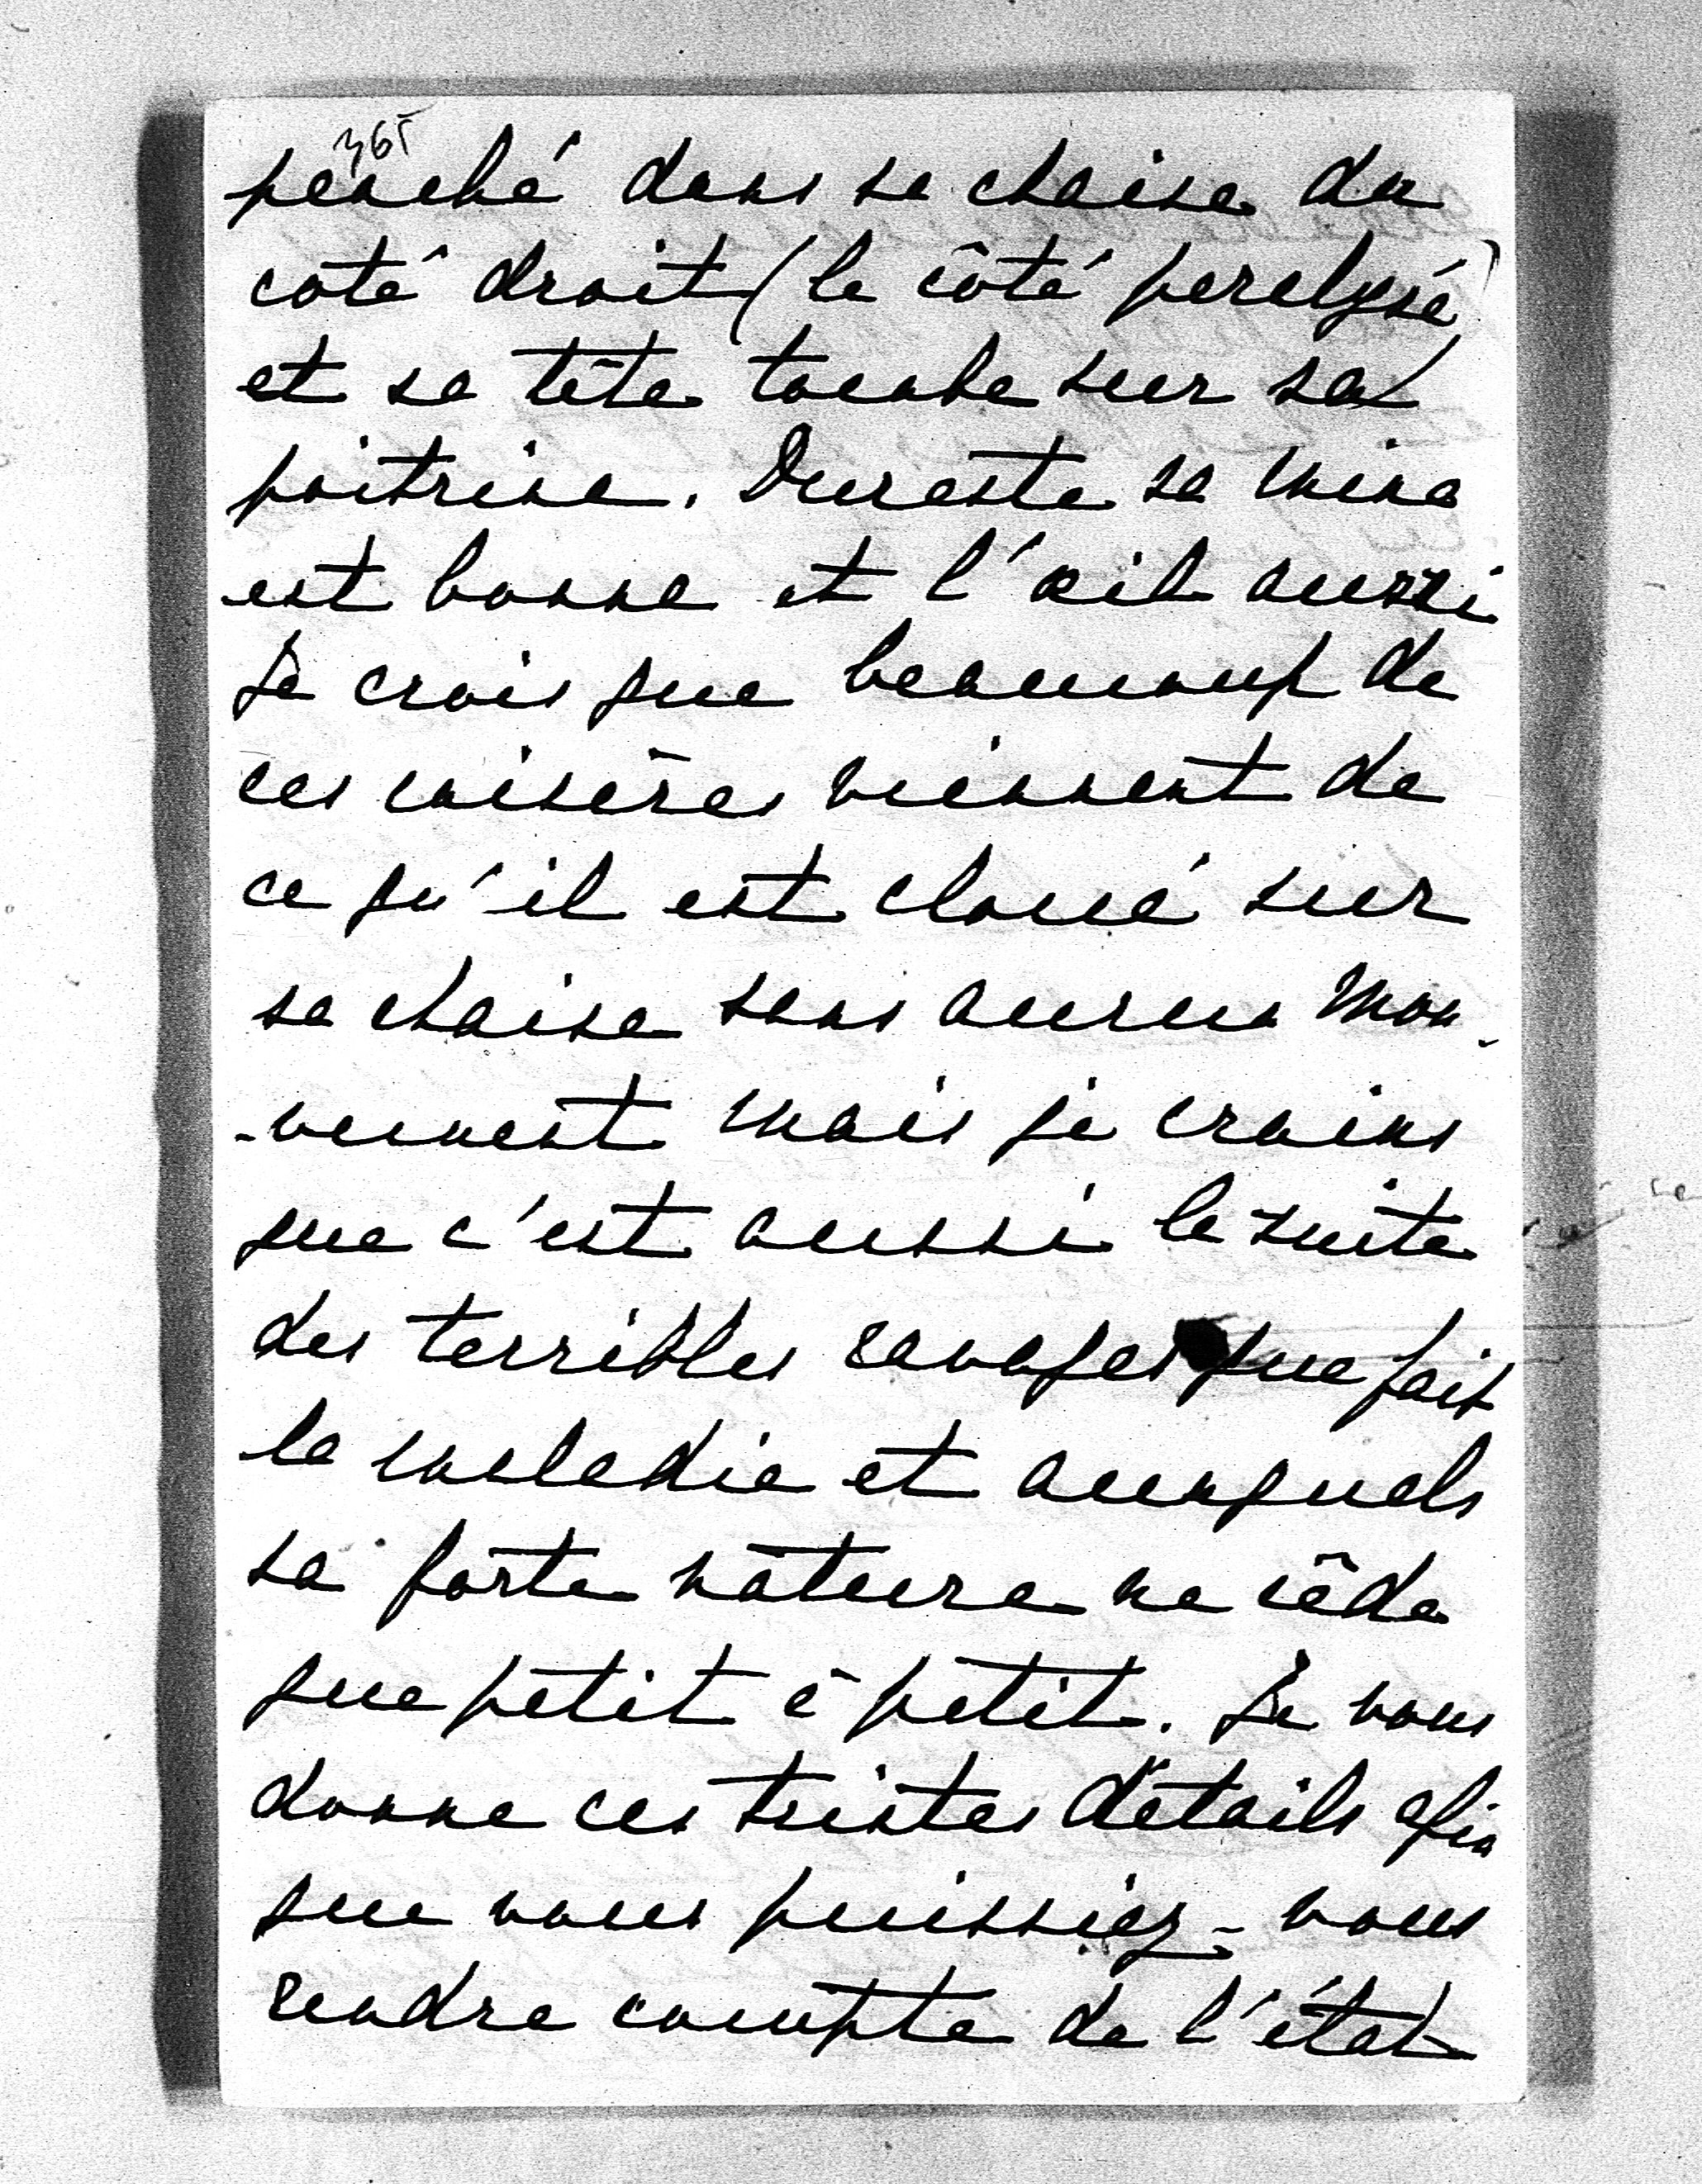 365
penché dans sa chaise du
coté droit (le côté paralysé)
et sa tête tombe sur sa
poitrine. Dureste sa mine
est bonne et l'œil aussi
Je crois que beaucoup de
ces misères viennent de
ce qu'il est cloué sur
sa chaise sans aucun mou-
-vement mais je crains
que c'est aussi la suite
des terribles ravages que fait
la maladie et auxquels
sa forte nature ne cède
que petit à petit. Je vous
donne ces tristes détails afin
que vous puissiez-vous
rendre compte de l'état